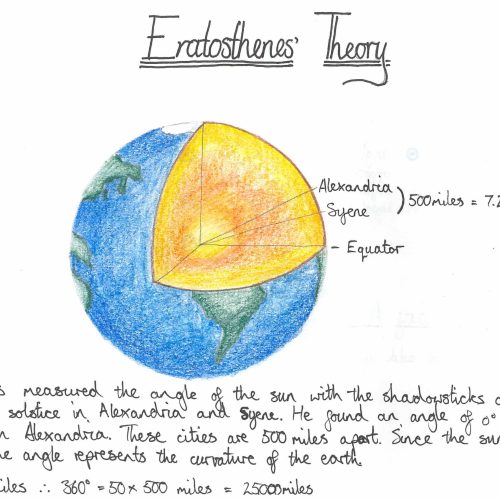 Eratosthenes' Theory
Alexandria
Syene
) 500 miles = 7.2
- Equator
s measured the angle of the sun with the shadowsticks
solstice in Alexandria and Syene. He found an angle of 0°
Alexandria. These cities are 500 miles apart. Since the sun
angle represents the curvature of the earth.
iles ∴ 360° = 50 × 500 miles = 25000 miles